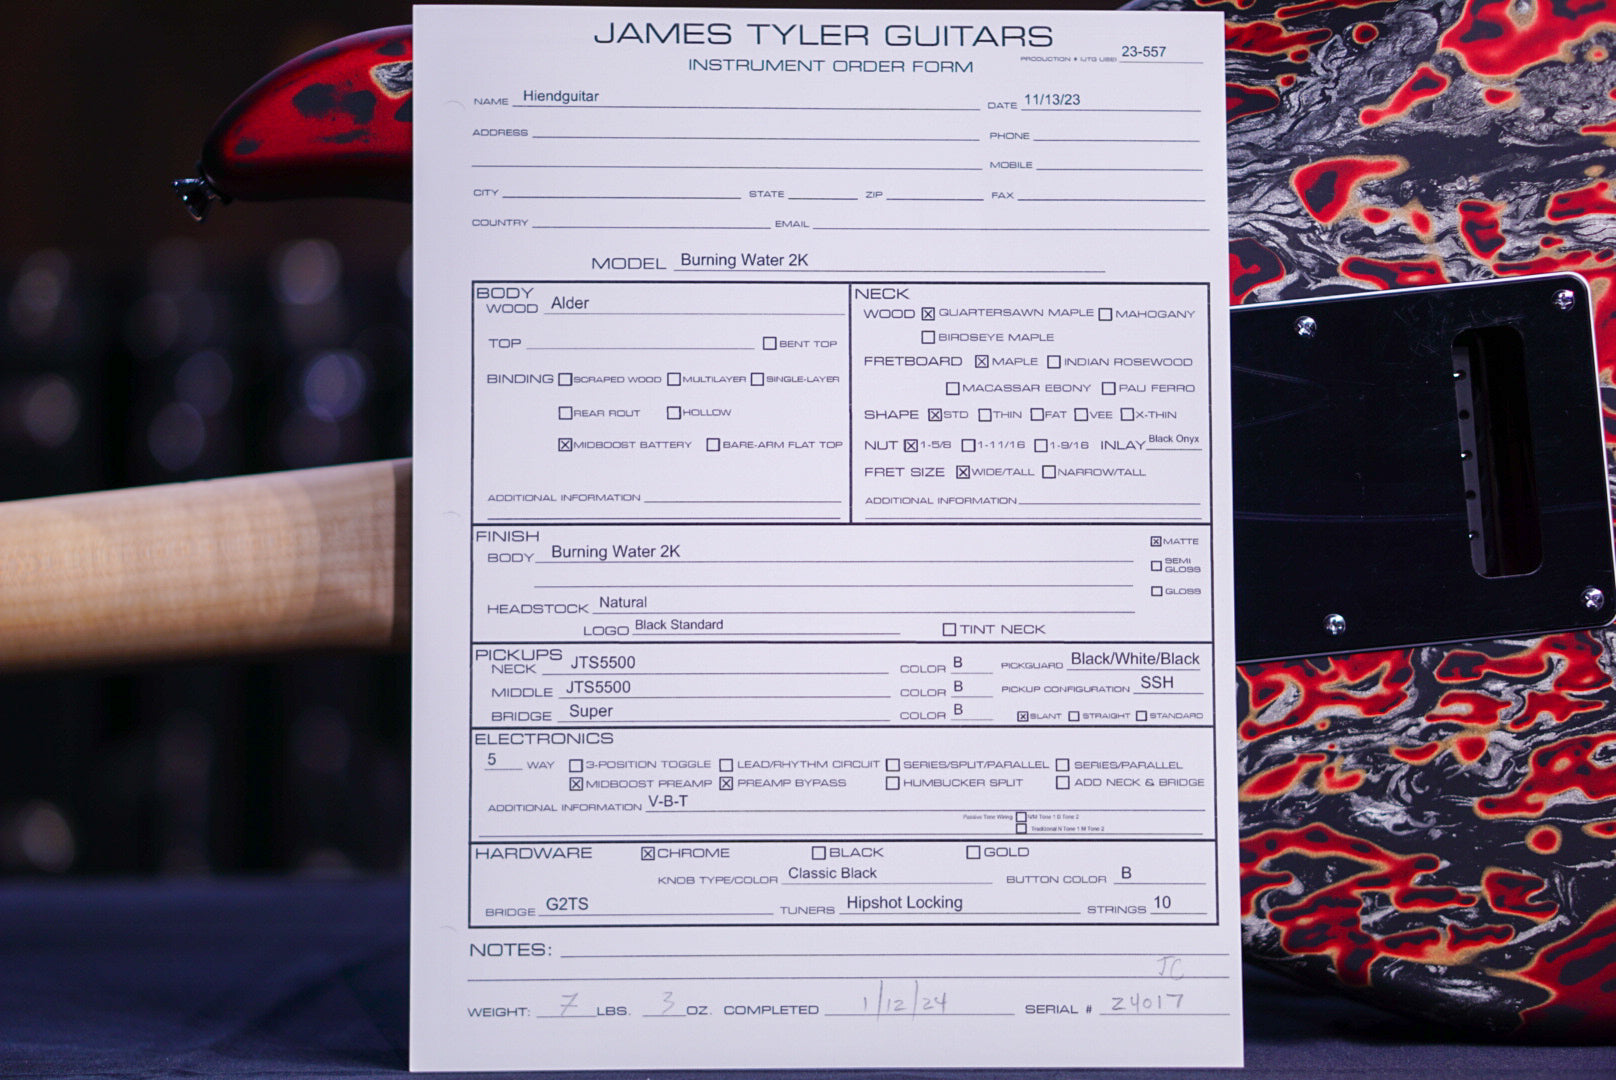 JAMES TYLER GUITARS
INSTRUMENT ORDER FORM
PRODUCTION # (JTG USE) 23-557
NAME Hiendguitar DATE 11/13/23
ADDRESS PHONE
MOBILE
CITY STATE ZIP FAX
COUNTRY EMAIL
MODEL Burning Water 2K
BODY
WOOD Alder
TOP ☐ BENT TOP
BINDING ☐ SCRAPED WOOD ☐ MULTILAYER ☐ SINGLE-LAYER
☐ REAR ROUT ☐ HOLLOW
☒ MIDBOOST BATTERY ☐ BARE-ARM FLAT TOP
ADDITIONAL INFORMATION
NECK
WOOD ☒ QUARTERSAWN MAPLE ☐ MAHOGANY
☐ BIRDSEYE MAPLE
FRETBOARD ☒ MAPLE ☐ INDIAN ROSEWOOD
☐ MACASSAR EBONY ☐ PAU FERRO
SHAPE ☒ STD ☐ THIN ☐ FAT ☐ VEE ☐ X-THIN
NUT ☒ 1-5/8 ☐ 1-11/16 ☐ 1-9/16 INLAY Black Onyx
FRET SIZE ☒ WIDE/TALL ☐ NARROW/TALL
ADDITIONAL INFORMATION
FINISH
BODY Burning Water 2K
☒ MATTE
☐ SEMI GLOSS
☐ GLOSS
HEADSTOCK Natural
LOGO Black Standard ☐ TINT NECK
PICKUPS
NECK JTS5500 COLOR B PICKGUARD Black/White/Black
MIDDLE JTS5500 COLOR B PICKUP CONFIGURATION SSH
BRIDGE Super COLOR B ☒ SLANT ☐ STRAIGHT ☐ STANDARD
ELECTRONICS
5 WAY ☐ 3-POSITION TOGGLE ☐ LEAD/RHYTHM CIRCUIT ☐ SERIES/SPLIT/PARALLEL ☐ SERIES/PARALLEL
☒ MIDBOOST PREAMP ☒ PREAMP BYPASS ☐ HUMBUCKER SPLIT ☐ ADD NECK & BRIDGE
ADDITIONAL INFORMATION V-B-T
Passive Tone Wiring ☐ N/M Tone 1 B Tone 2
☐ Traditional N Tone 1 M Tone 2
HARDWARE ☒ CHROME ☐ BLACK ☐ GOLD
KNOB TYPE/COLOR Classic Black BUTTON COLOR B
BRIDGE G2TS TUNERS Hipshot Locking STRINGS 10
NOTES:
JC
WEIGHT: 7 LBS. 3 OZ. COMPLETED 1/12/24 SERIAL # 24017